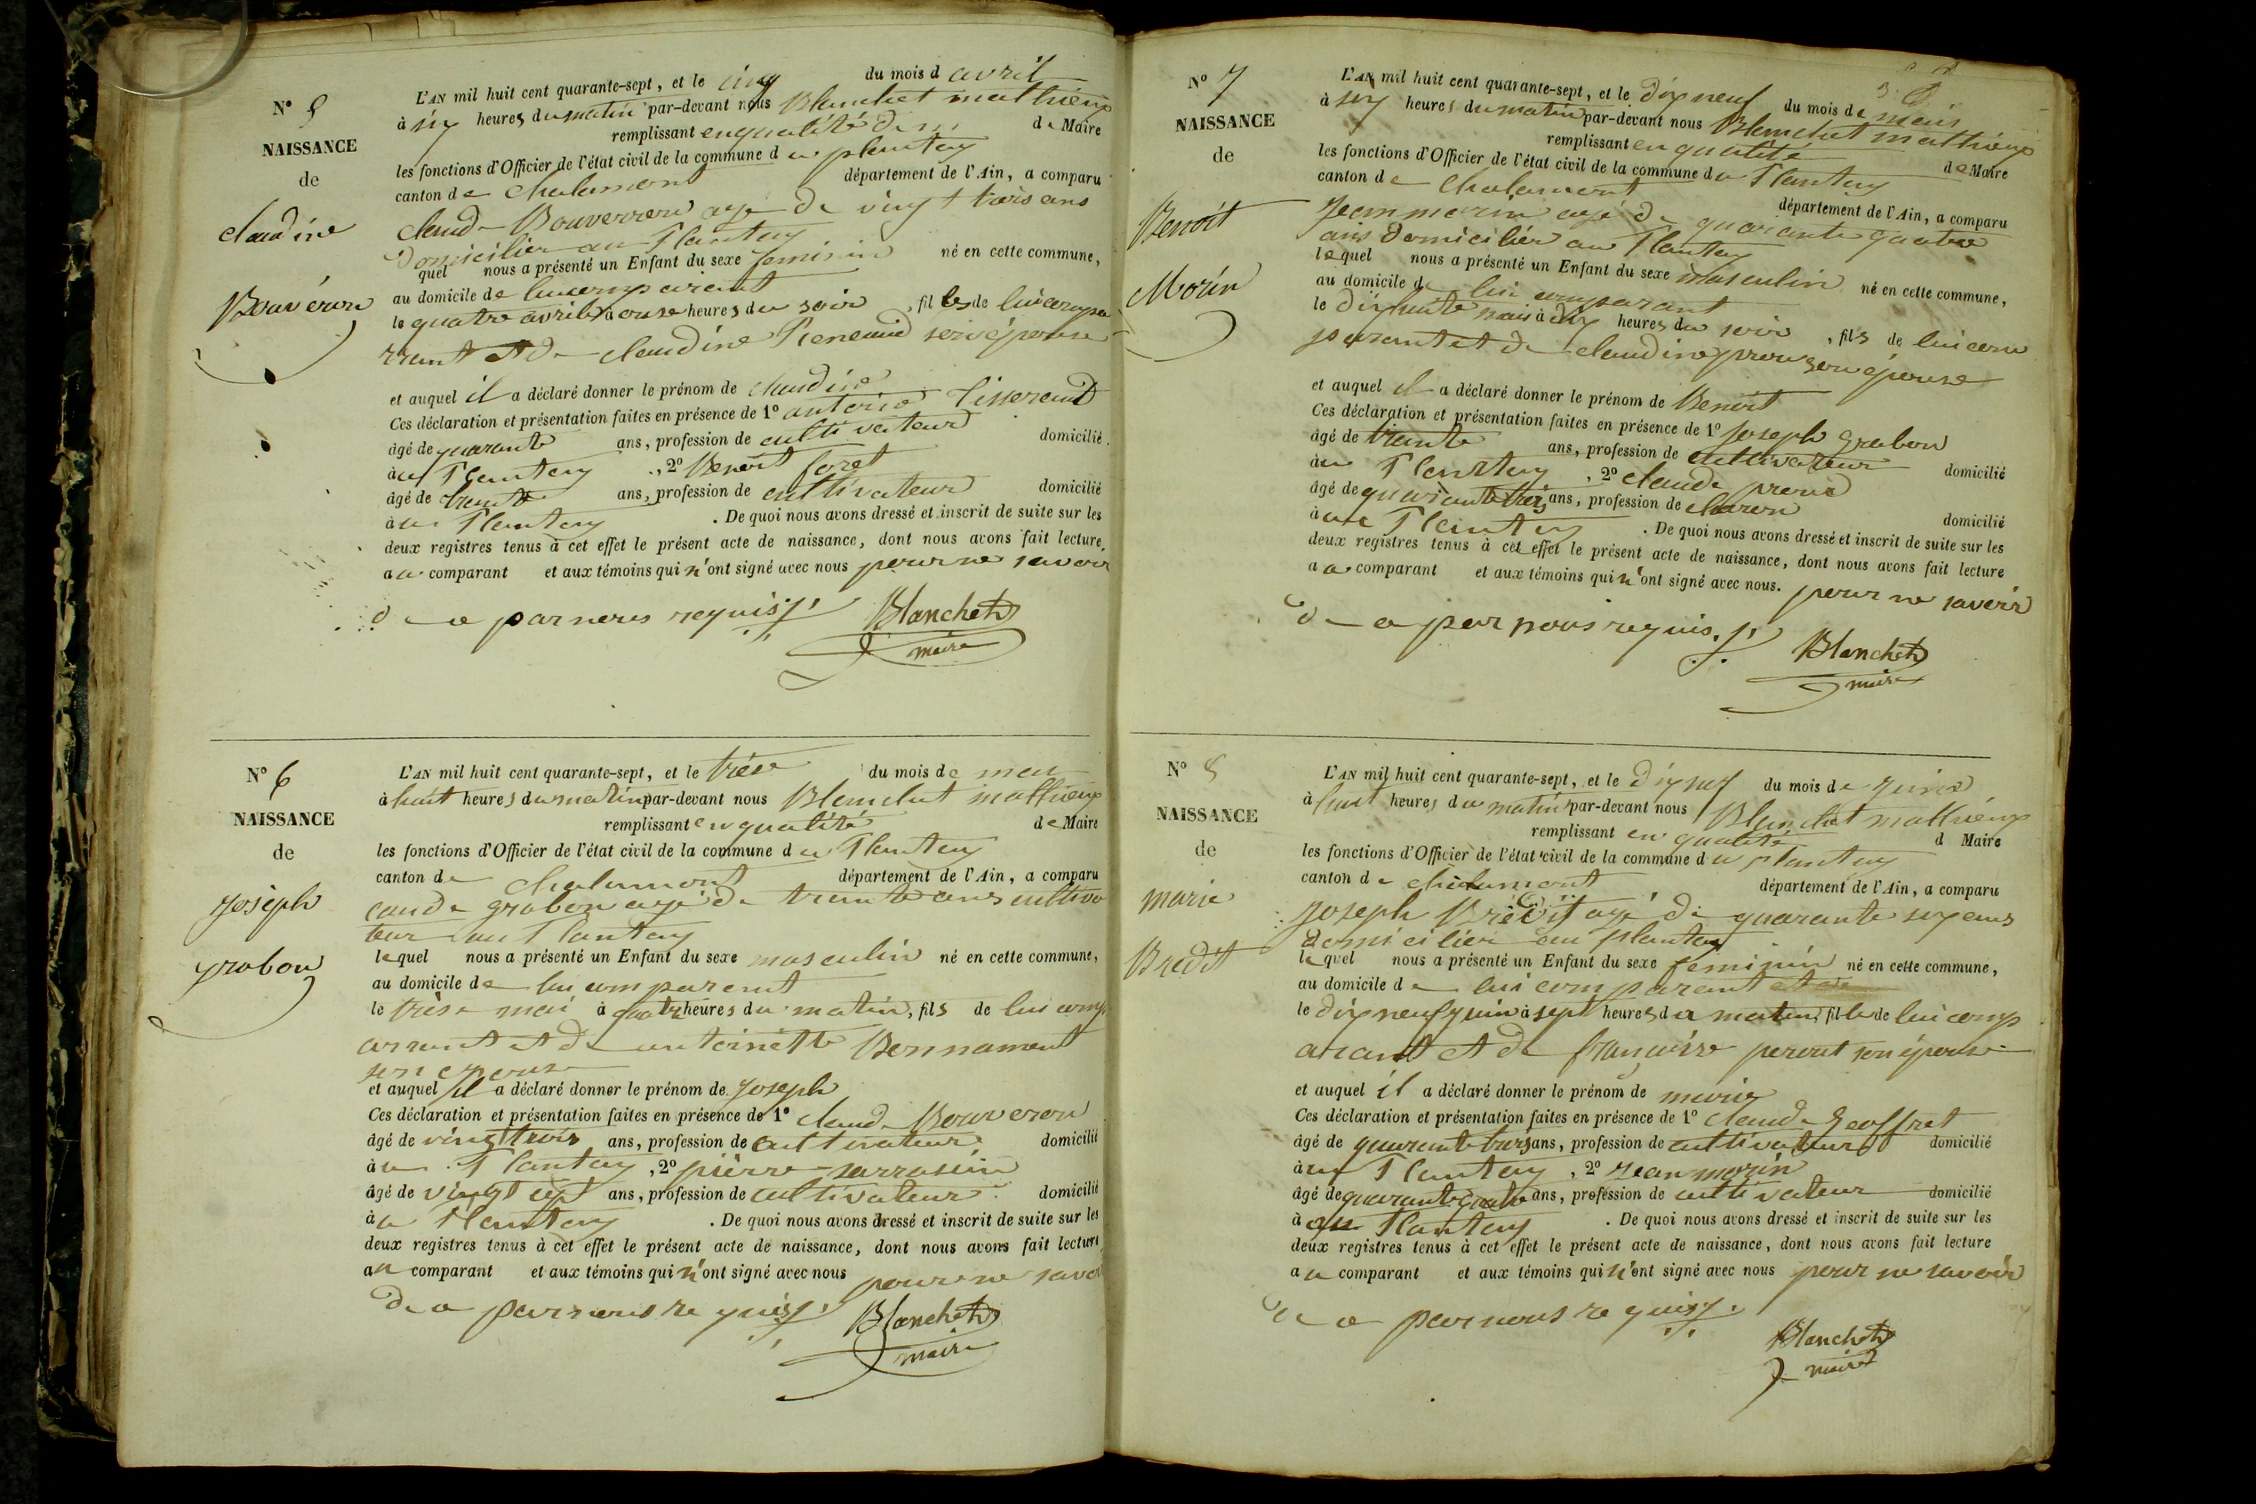 N° 5
NAISSANCE
de
claudine
Bouveron
L'AN mil huit cent quarante-sept, et le cinq du mois d avril
à six heures du matin par-devant nous Blanchet mathieux
remplissant en qualité de Maire
les fonctions d'Officier de l'état civil de la commune du plantay
canton de chalamont département de l'Ain, a comparu
claude Bouverron agé de vingt trois ans
domicilier au Plantay
quel nous a présenté un Enfant du sexe feminin né en cette commune,
au domicile de lui comparant
le quatre avril à onse heures du soir, fille de lui compa
rant et de claudine Renaud son épouse
et auquel il a déclaré donner le prénom de claudine
Ces déclaration et présentation faites en présence de 1° antoine Tisserand
âgé de quarante ans, profession de cultivateur domicilié
à au Plantay, 2° Benoit foret
âgé de trente ans, profession de cultivateur domicilié
à au Plantay. De quoi nous avons dressé et inscrit de suite sur les
deux registres tenus à cet effet le présent acte de naissance, dont nous avons fait lecture,
au comparant et aux témoins qui n'ont signé avec nous pour ne savoir
de ce par nous requis
Blanchet
maire
N° 6
NAISSANCE
de
joseph
grabon
L'AN mil huit cent quarante-sept, et le trèse du mois de mai
à huit heures du matin par-devant nous Blanchet mathieux
remplissant en qualité de Maire
les fonctions d'Officier de l'état civil de la commune du Plantay
canton de chalamont département de l'Ain, a comparu
caude grabon agé de trente ans cultiva
teur au Plantay
lequel nous a présenté un Enfant du sexe masculin né en cette commune,
au domicile de lui comparant
le trèse mai à quatre heures du matin, fils de lui comp
arant et de antoinette Bonnament
son epouse
et auquel il a déclaré donner le prénom de joseph
Ces déclaration et présentation faites en présence de 1° claude Bouveron
âgé de vingt trois ans, profession de cultivateur domicilié
à au Plantay, 2° pièrre sarrasin
âgé de vingt sept ans, profession de cultivateur domicilié
à au Plantay. De quoi nous avons dressé et inscrit de suite sur les
deux registres tenus à cet effet le présent acte de naissance, dont nous avons fait lecture
au comparant et aux témoins qui n'ont signé avec nous pour ne savoir
de ce par nous requis
Blanchet
maire
N° 7
NAISSANCE
de
Benoit
Morin
L'AN mil huit cent quarante-sept, et le dix neuf du mois de mais
à six heures du matin par-devant nous Blanchet mathieux
remplissant en qualité de Maire
les fonctions d'Officier de l'état civil de la commune du Plantay
canton de chalamont département de l'Ain, a comparu
jean morin agé de quarante quatre
ans domicilier au Plantay
lequel nous a présenté un Enfant du sexe masculin né en cette commune,
au domicile de lui comparant
le dix huite mais à dix heures du soir, fils de lui com
parant et de claudine prou son épouse
et auquel il a déclaré donner le prénom de Benoit
Ces déclaration et présentation faites en présence de 1° joseph grabon
âgé de trente ans, profession de cultivateur domicilié
à au Plantay, 2° claude
âgé de quarante trois ans, profession de charon domicilié
à au Plantay. De quoi nous avons dressé et inscrit de suite sur les
deux registres tenus à cet effet le présent acte de naissance, dont nous avons fait lecture
au comparant et aux témoins qui n'ont signé avec nous. pour ne savoir
de ce par nous requis
Blanchet
maire
N° 8
NAISSANCE
de
marie
Bredit
L'AN mil huit cent quarante-sept, et le dix neuf du mois de juin
à huit heures du matin par-devant nous Blanchet mathieux
remplissant en qualité d Maire
les fonctions d'Officier de l'état civil de la commune du plantay
canton de chalamont département de l'Ain, a comparu
joseph agé de quarante six ans
domicilier au plantay
lequel nous a présenté un Enfant du sexe feminin né en cette commune,
au domicile de lui comparant
le dix neuf juin à sept heures du matin, fille de lui comp
arant et de françoise perout son épouse
et auquel il a déclaré donner le prénom de marie
Ces déclaration et présentation faites en présence de 1° claude geoffret
âgé de quarante trois ans, profession de cultivateur domicilié
à au Plantay, 2° jean morin
âgé de quarante quatre ans, profession de cultivateur domicilié
à au Plantay. De quoi nous avons dressé et inscrit de suite sur les
deux registres tenus à cet effet le présent acte de naissance, dont nous avons fait lecture
au comparant et aux témoins qui n'ont signé avec nous pour ne savoir
de ce par nous requis
Blanchet
maire